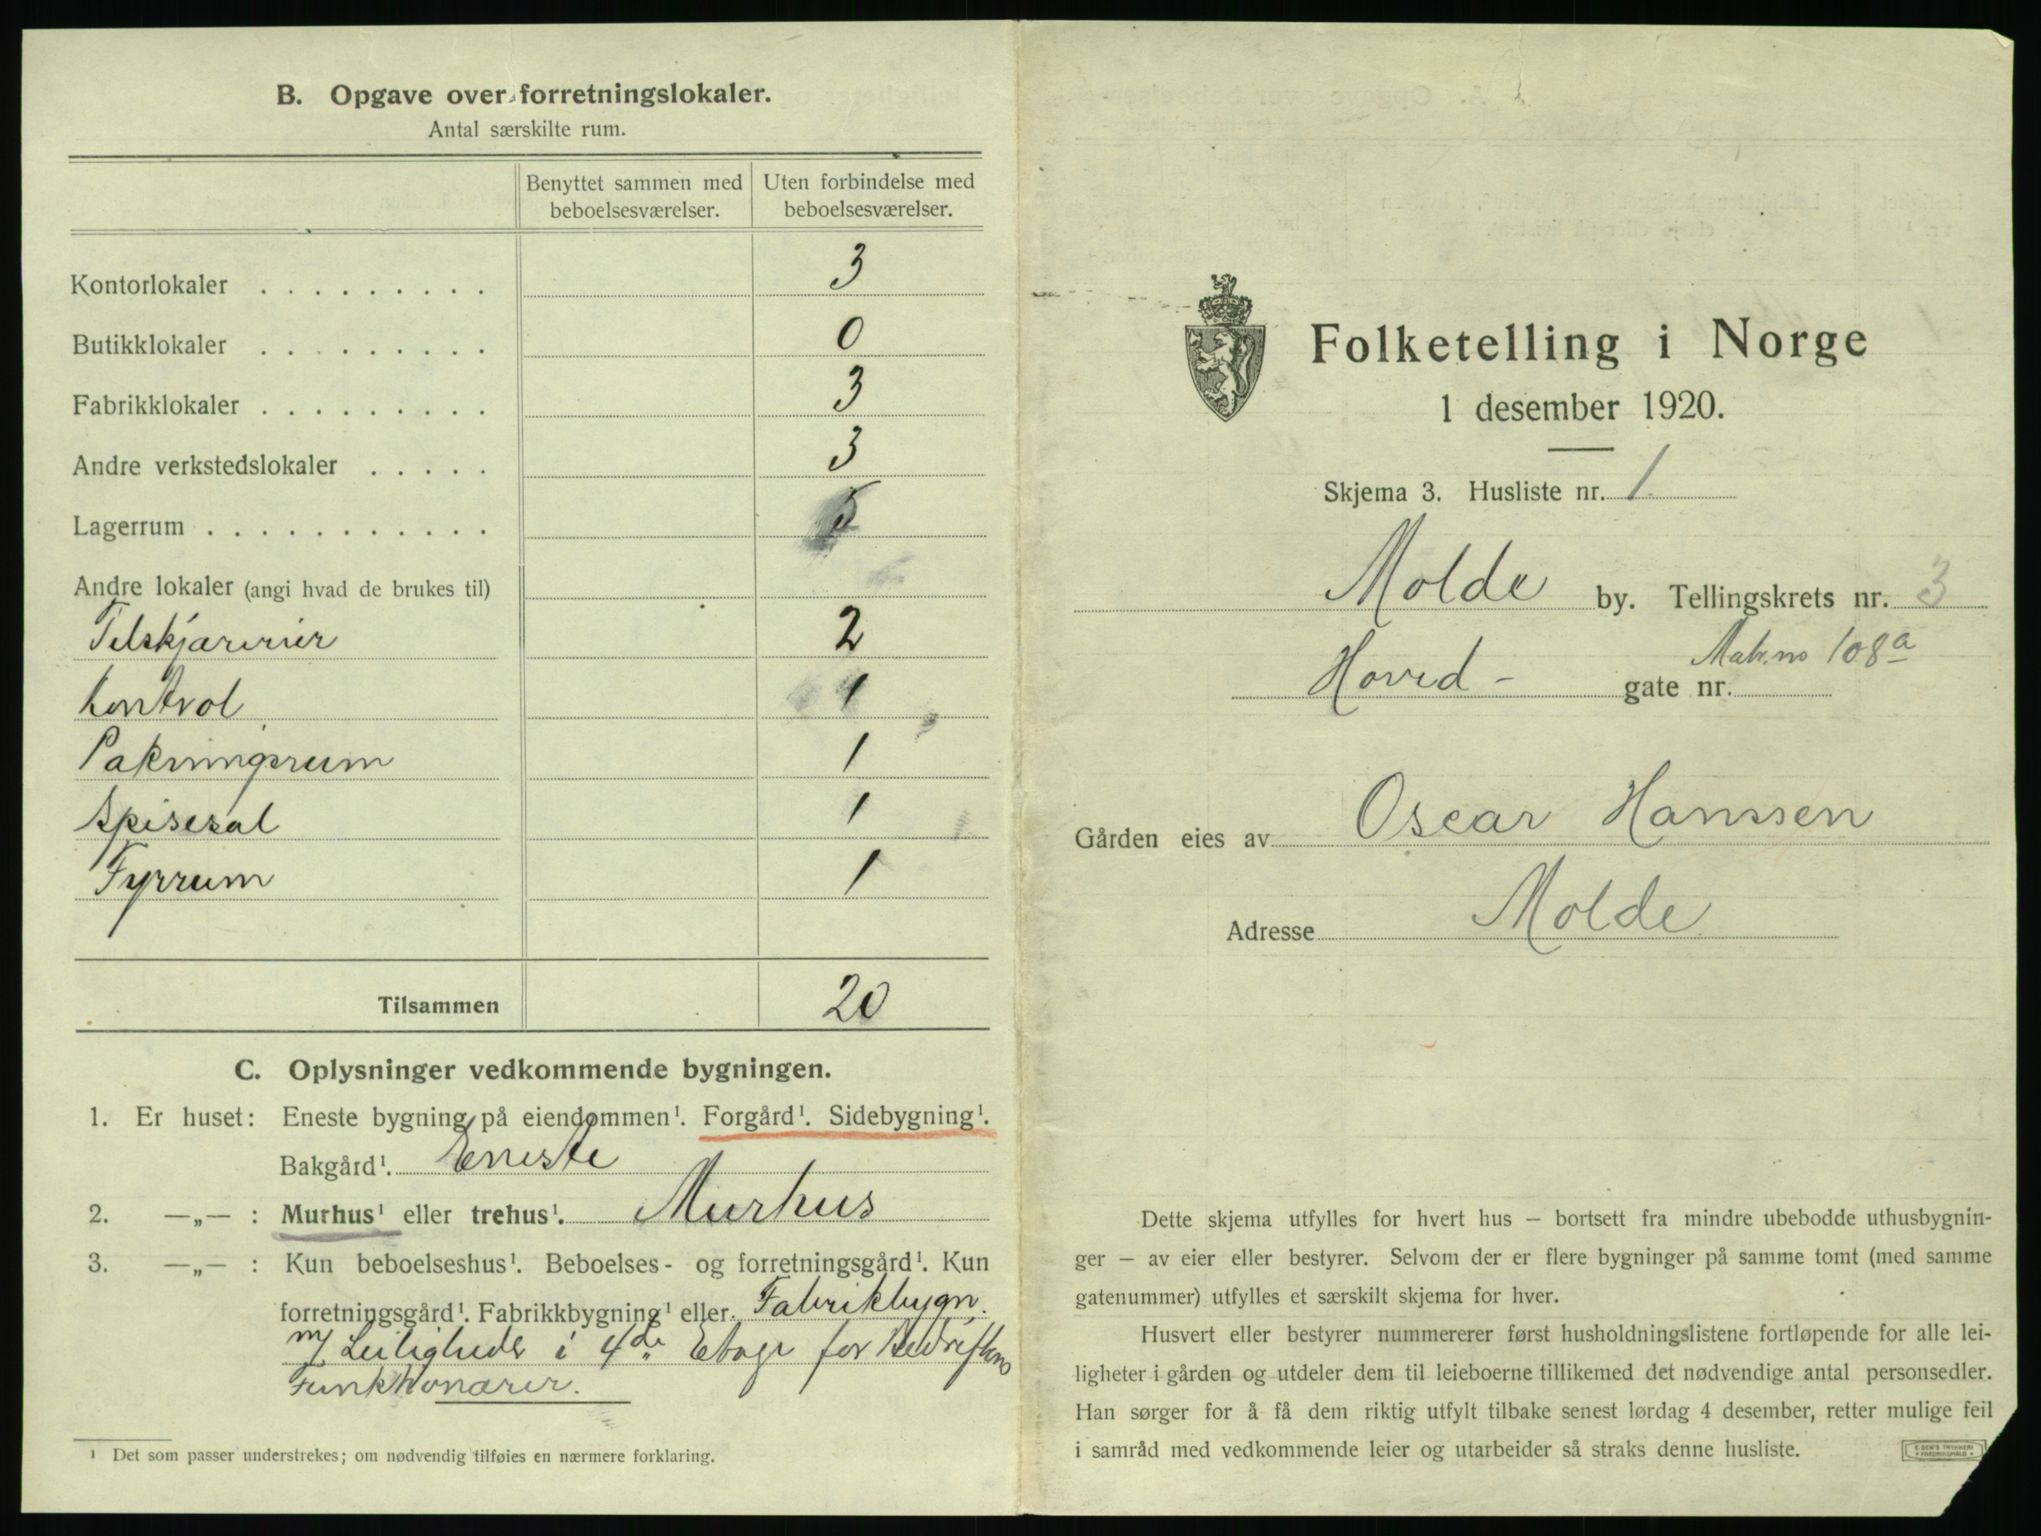 B. Opgave over forretningslokaler.
Antal særskilte rum.
Benyttet sammen med beboelsesværelser.
Uten forbindelse med beboelsesværelser.
Kontorlokaler . . . . . . . . . 3
Butikklokaler . . . . . . . . . 0
Fabrikklokaler . . . . . . . . . 3
Andre verkstedslokaler . . . . . 3
Lagerrum . . . . . . . . . . . 5
Andre lokaler (angi hvad de brukes til)
Tilskjærerier 2
Kontrol 1
Pakningsrum 1
Spisesal 1
Fyrrum 1
Tilsammen 20
C. Oplysninger vedkommende bygningen.
1. Er huset: Eneste bygning på eiendommen¹. Forgård¹. Sidebygning¹.
Bakgård¹. Eneste
2. —„— : Murhus¹ eller trehus¹. Murhus
3. —„— : Kun beboelseshus¹. Beboelses- og forretningsgård¹. Kun
forretningsgård¹. Fabrikkbygning¹ eller Fabrikbygn.
m/ Leiligheder i 4de Etage for Bedriftens
Funktionærer.
¹ Det som passer understrekes; om nødvendig tilføies en nærmere forklaring.
Folketelling i Norge
1 desember 1920.
Skjema 3. Husliste nr. 1
Molde by. Tellingskrets nr. 3
Matr. no 108a
Hoved- gate nr.
Gården eies av Oscar Hanssen
Adresse Molde
Dette skjema utfylles for hvert hus — bortsett fra mindre ubebodde uthusbygnin-
ger — av eier eller bestyrer. Selvom der er flere bygninger på samme tomt (med samme
gatenummer) utfylles et særskilt skjema for hver.
Husvert eller bestyrer nummererer først husholdningslistene fortløpende for alle lei-
ligheter i gården og utdeler dem til leieboerne tillikemed det nødvendige antal personsedler.
Han sørger for å få dem riktig utfylt tilbake senest lørdag 4 desember, retter mulige feil
i samråd med vedkommende leier og utarbeider så straks denne husliste.